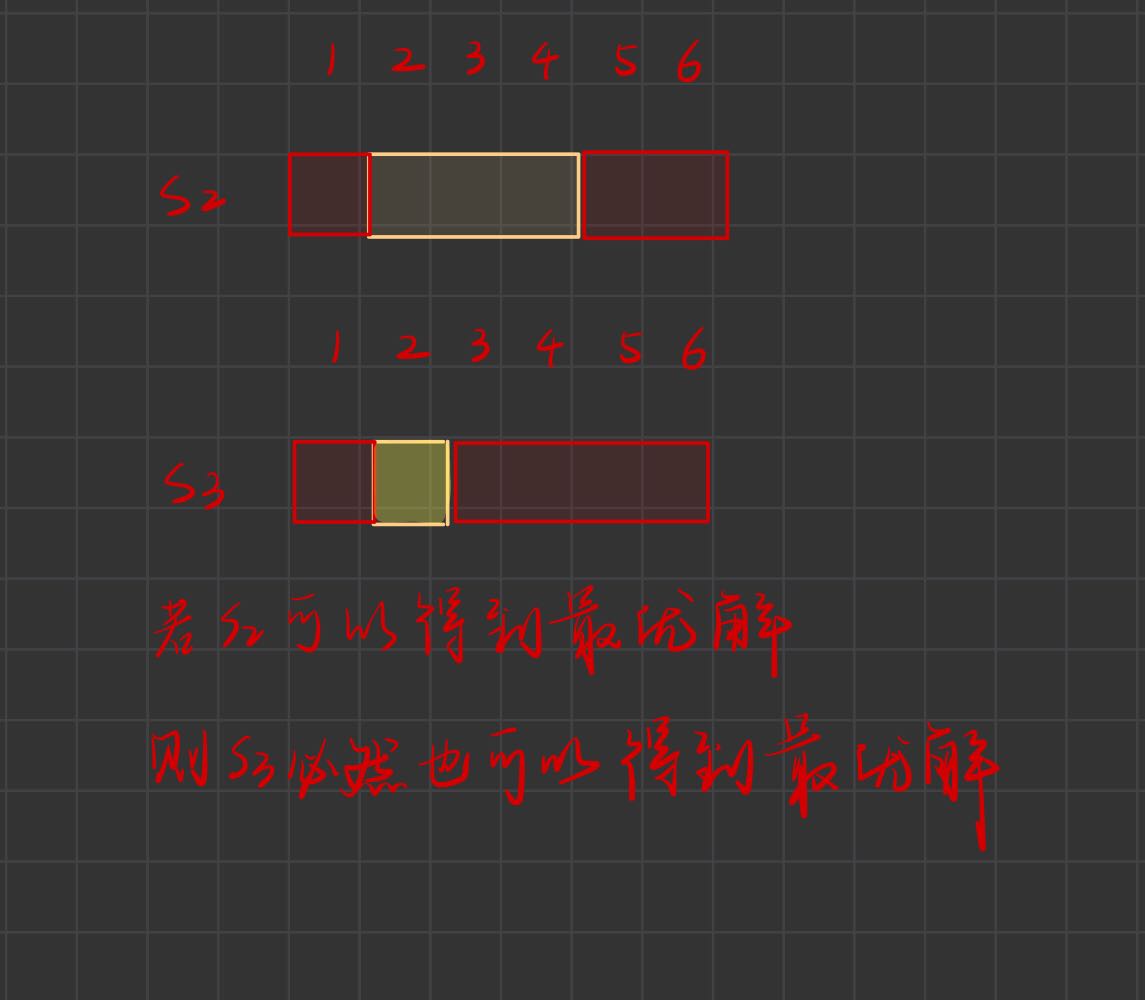 1 2 3 4 5 6
S2
1 2 3 4 5 6
S3
若S2可以得到最优解
则S3必然也可以得到最优解